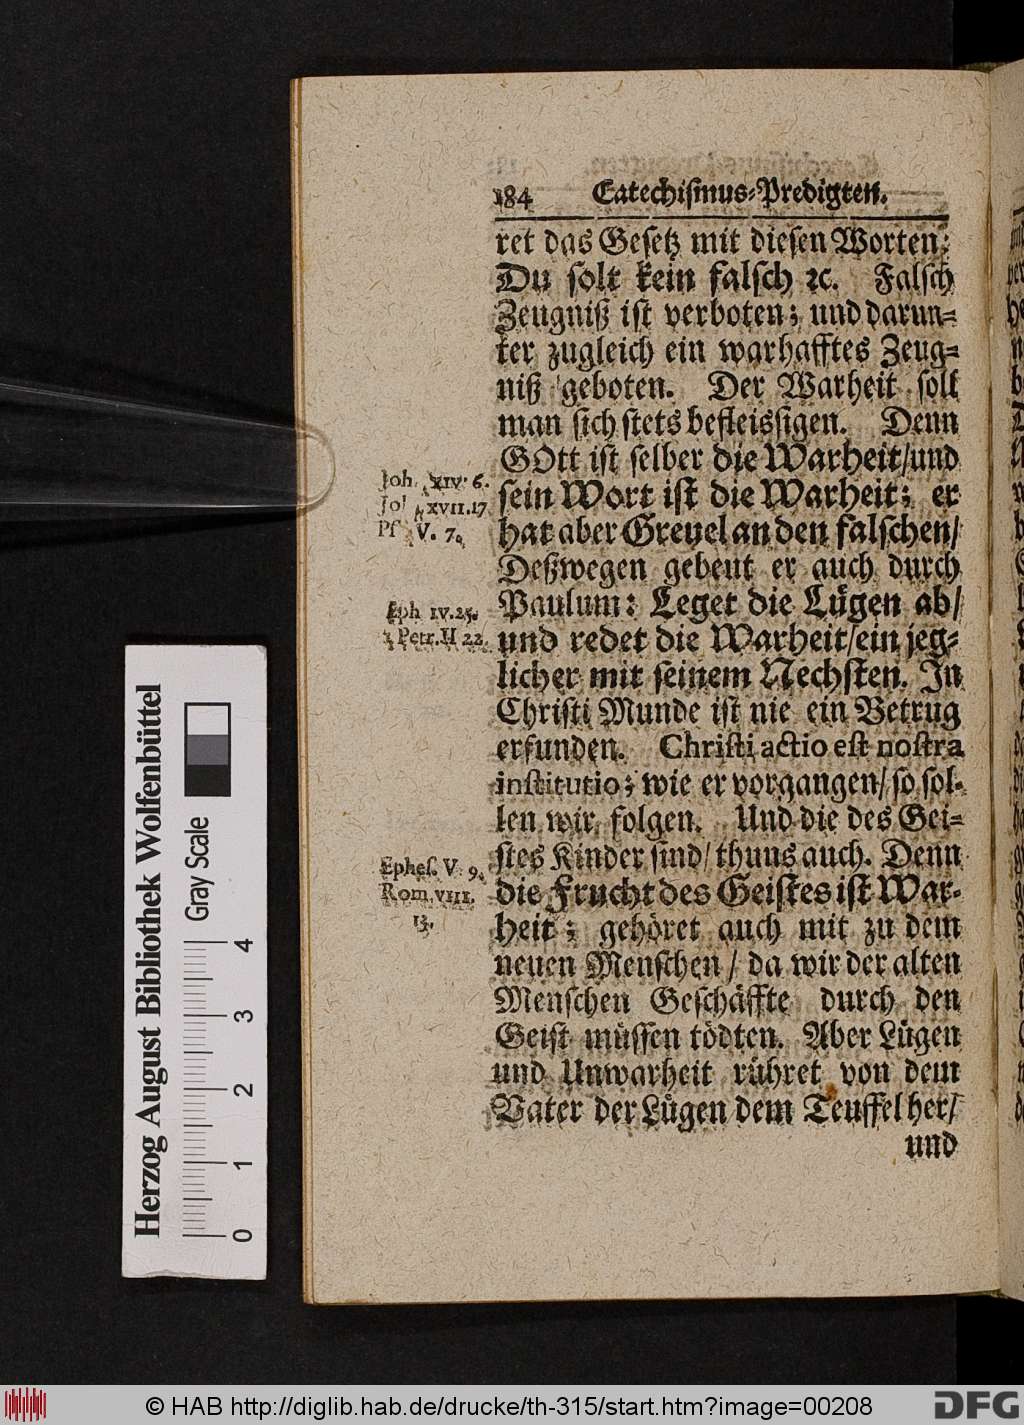 184 Catechismus-Predigten.
ret das Gesetz mit diesen Worten:
Du solt kein falsch ꝛc. Falsch
Zeugniß ist verboten; und darun-
ter zugleich ein warhafftes Zeug-
niß geboten. Der Warheit soll
man sich stets befleissigen. Denn
GOtt ist selber die Warheit/und
Joh. XIV. 6.
sein Wort ist die Warheit; er
Joh. XVII. 17
hat aber Greuel an den falschen/
Ps. V. 7.
Deßwegen gebeut er auch durch
Paulum: Leget die Lügen ab/
Eph. IV. 25.
und redet die Warheit/ein jeg-
1 Petr. II 22.
licher mit seinem Nechsten. In
Christi Munde ist nie ein Betrug
erfunden. Christi actio est nostra
institutio; wie er vorgangen/ so sol-
len wir folgen. Und die des Gei-
stes Kinder sind/ thuns auch. Denn
Ephes. V. 9.
die Frucht des Geistes ist War-
Rom. VIII.
13.
heit; gehöret auch mit zu dem
neuen Menschen/ da wir der alten
Menschen Geschäffte durch den
Geist müssen tödten. Aber Lügen
und Unwarheit rühret von dem
Vater der Lügen dem Teuffel her/
und
Herzog August Bibliothek Wolfenbüttel
Gray Scale
0 1 2 3 4
© HAB http://diglib.hab.de/drucke/th-315/start.htm?image=00208
DFG